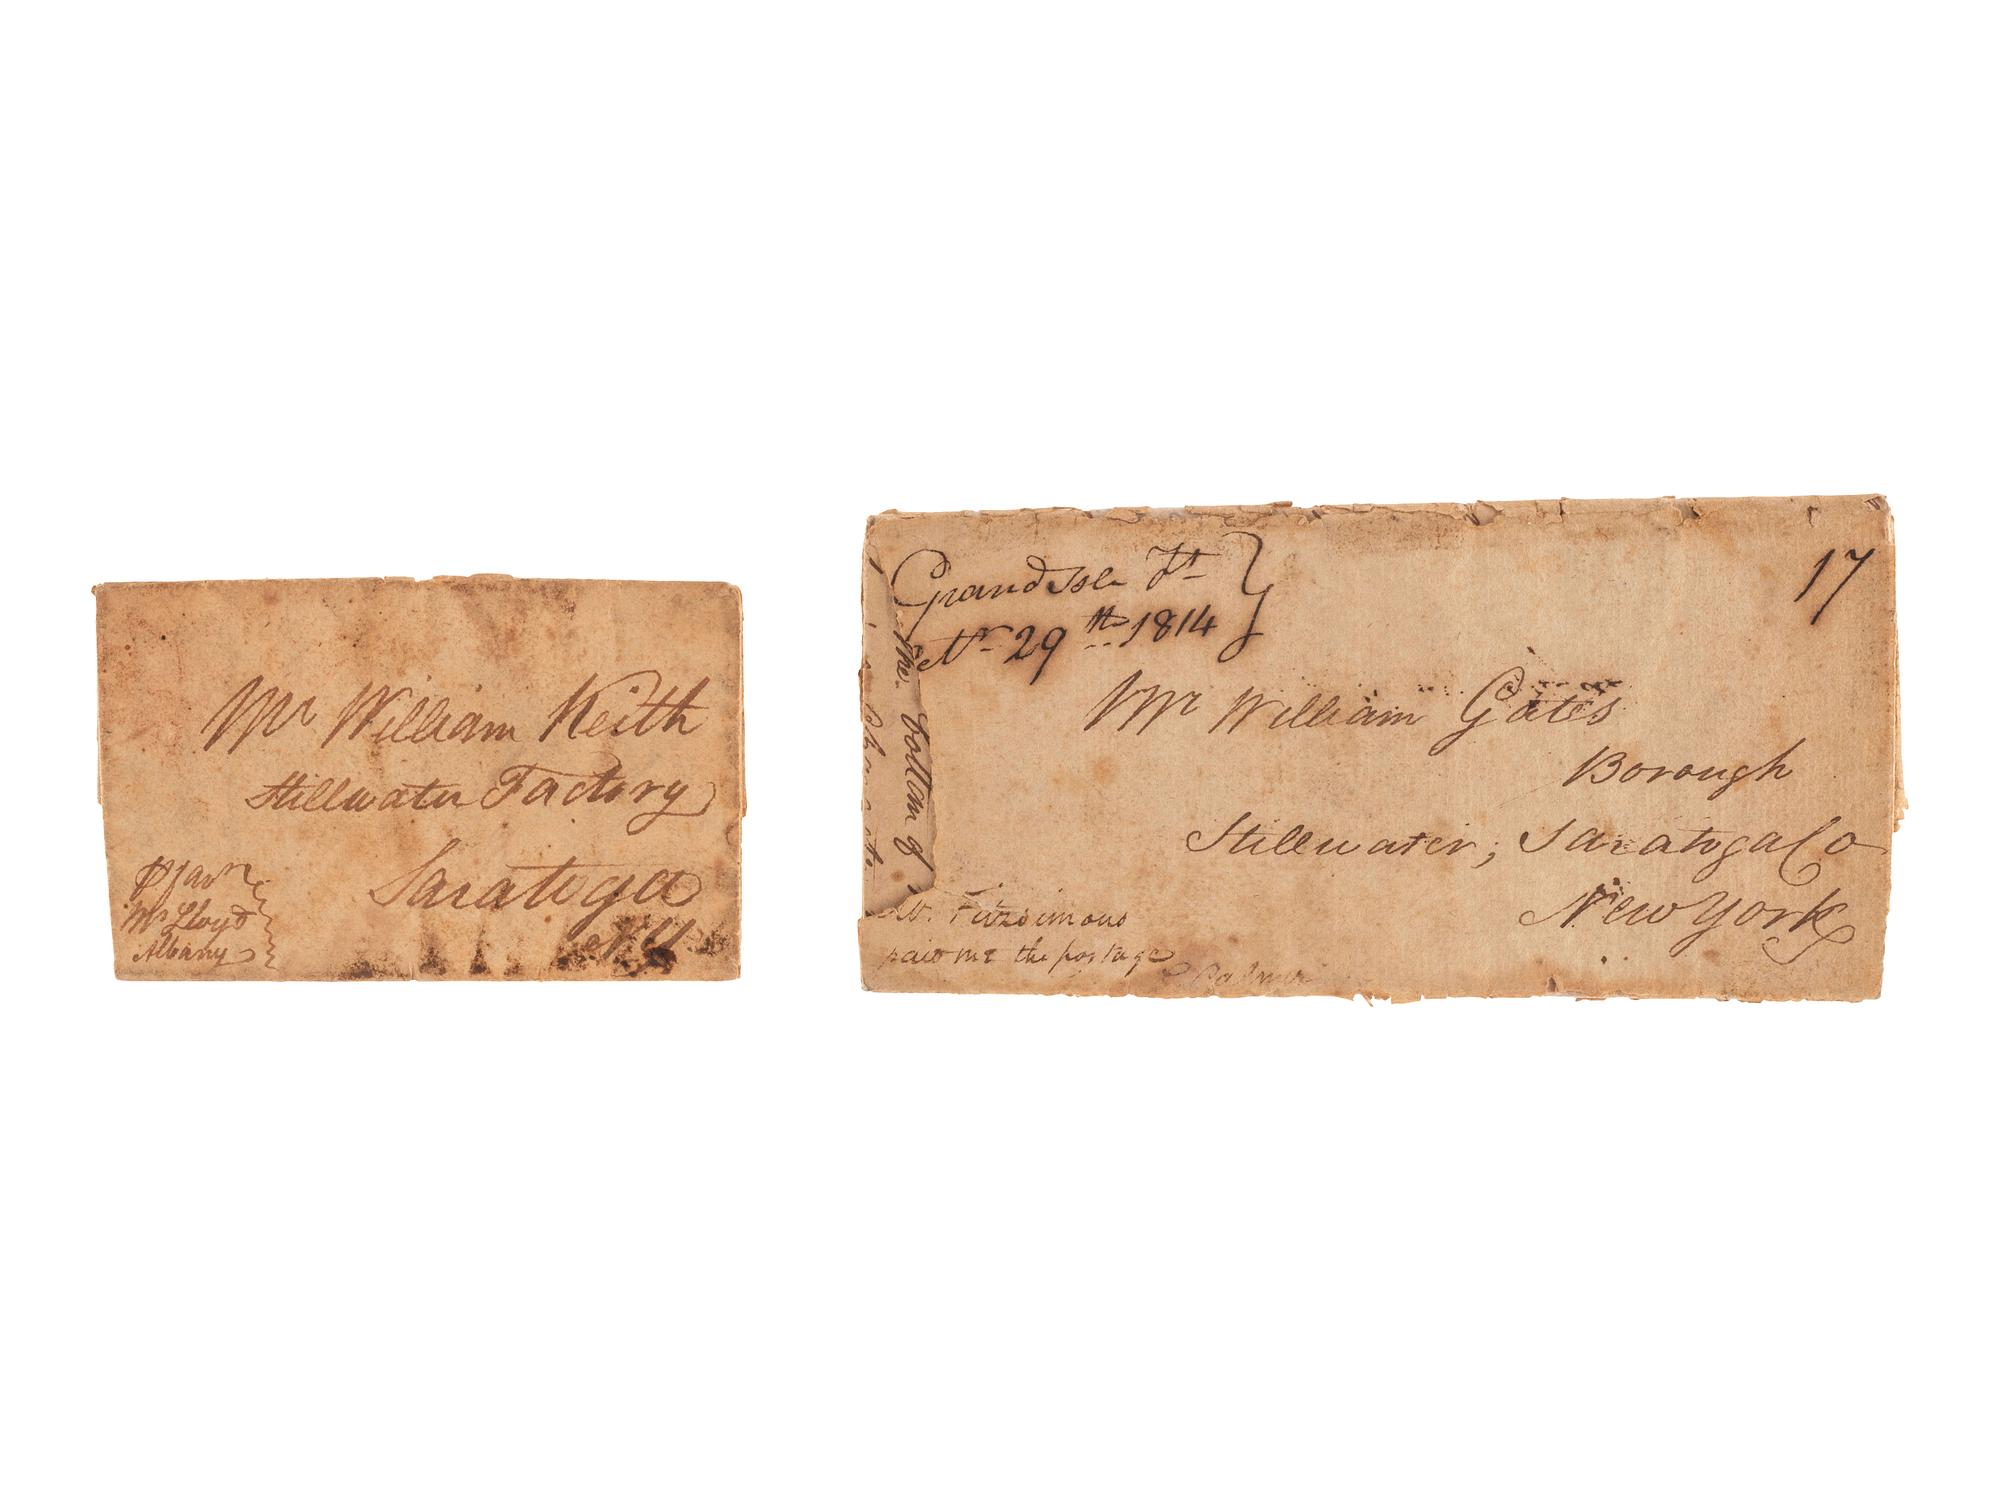 Mr William Keith
Stillwater Factory
Saratoga
NY
Mr Lloyd
Albany
Grand Isle Vt
29th 1814
17
Mr William Gates
Borough
Stillwater, Saratoga Co
New York
the bottom of
Fitzsimons
paid me the postage
Palmer